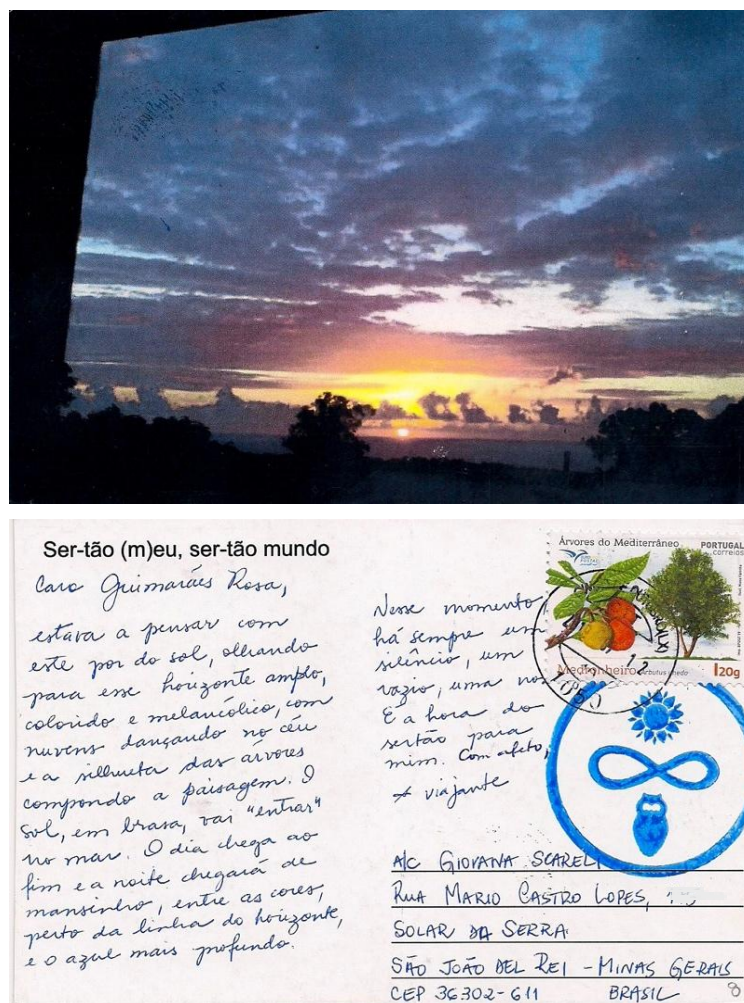 Ser-tão (m)eu, ser-tão mundo
Caro Guimarães Rosa,
estava a pensar com
este por do sol, olhando
para esse horizonte amplo,
colorido e melancólico, com
nuvens dançando no céu
e a silhueta das árvores
compondo a paisagem. O
sol, em brasa, vai "entrar"
no mar. O dia chega ao
fim e a noite chegará de
mansinho, entre as cores,
perto da linha do horizonte,
e o azul mais profundo.
Nesse momento
há sempre um
silêncio, um
vazio, uma
É a hora do
sertão para
mim. Com afeto,
A viajante
Árvores do Mediterrâneo
PORTUGAL
correios
Medronheiro Arbutus unedo
I20g
12
1050
A/C GIOVANA SCARELI
RUA MARIO CASTRO LOPES,
SOLAR DA SERRA
SÃO JOÃO DEL REI - MINAS GERAIS
CEP 36302-611 BRASIL
8